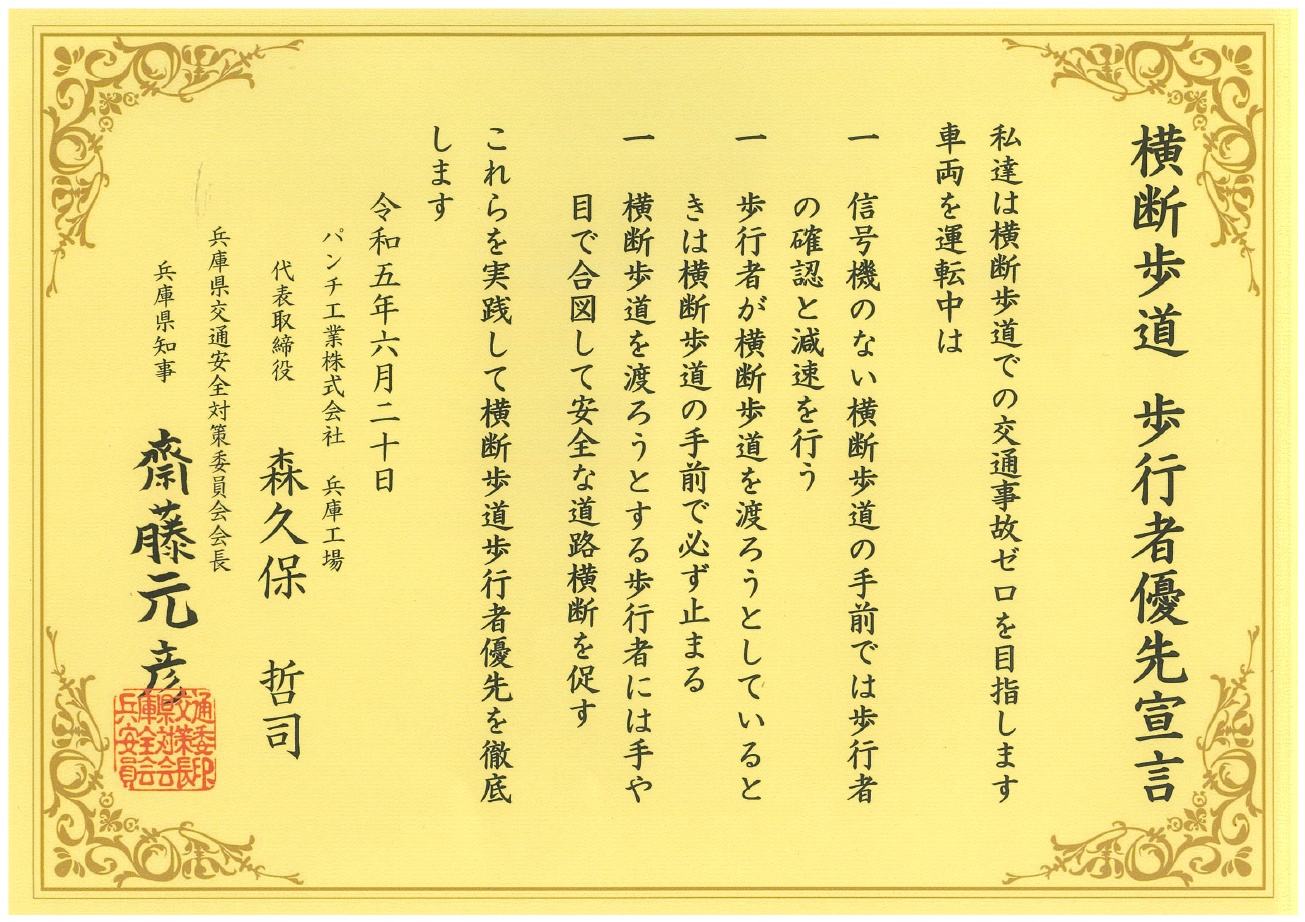 横断歩道　歩行者優先宣言
私達は横断歩道での交通事故ゼロを目指します
車両を運転中は
一　信号機のない横断歩道の手前では歩行者
の確認と減速を行う
一　歩行者が横断歩道を渡ろうとしていると
きは横断歩道の手前で必ず止まる
一　横断歩道を渡ろうとする歩行者には手や
目で合図して安全な道路横断を促す
これらを実践して横断歩道歩行者優先を徹底
します
令和五年六月二十日
パンチ工業株式会社　兵庫工場
代表取締役　森久保　哲司
兵庫県交通安全対策委員会会長
兵庫県知事　齋藤元彦
兵庫県交通
安全対策委
員会会長印